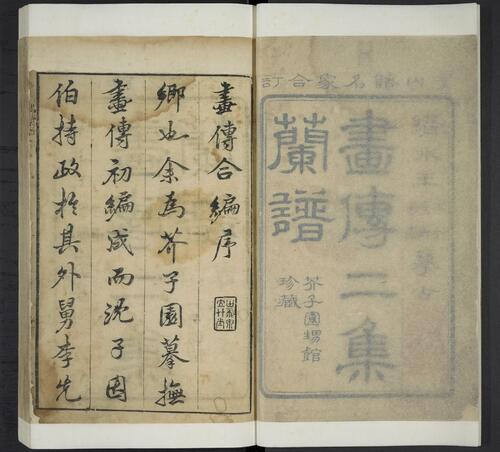 內諸名家合訂
畫傳二集
蘭譜
芥子園甥館
珍藏
畫傳合編序
鄉也余為芥子園摹撫
畫傳初編成而沈子因
伯持政於其外舅李先